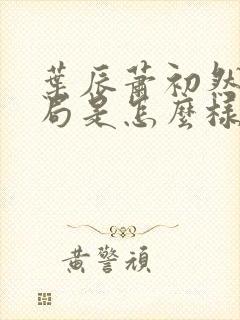 葉辰蕭初然
局是怎麼樣
黃警頑